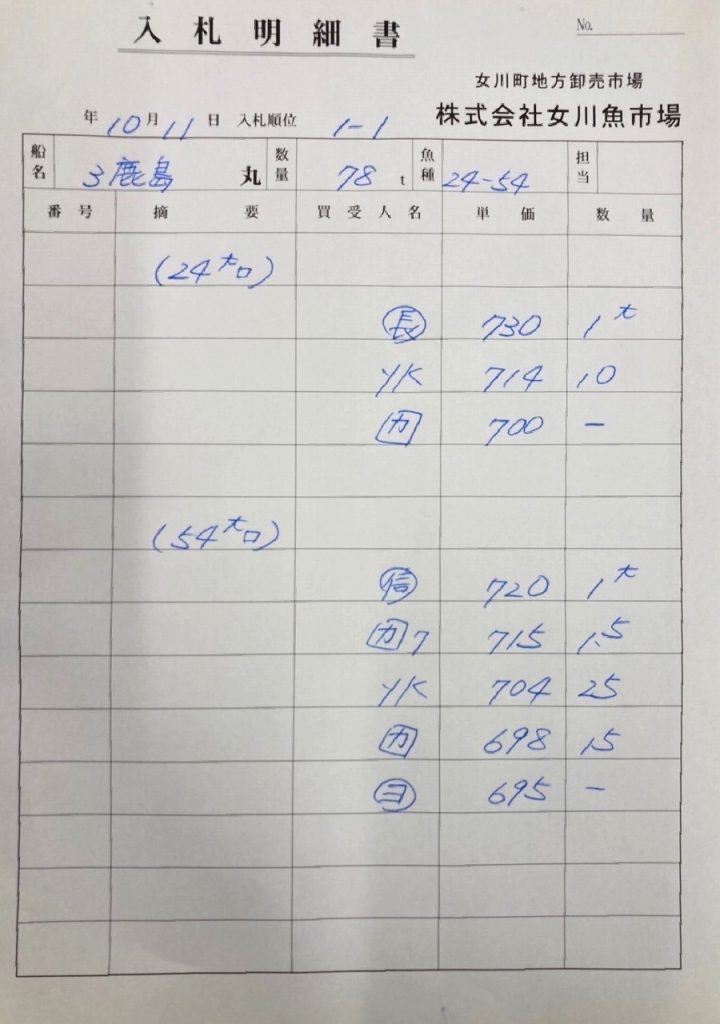 入札明細書
No.
女川町地方卸売市場
年 10月 11日 入札順位 1-1 株式会社女川魚市場
船名 3鹿島 丸 数量 78 t 魚種 24-54 担当
番号 摘要 買受人名 単価 数量
(24大口)
長 730 1大
YK 714 10
カ 700 ー
(54大口)
信 720 1大
カ7 715 1.5
YK 704 25
カ 698 15
ヨ 695 ー